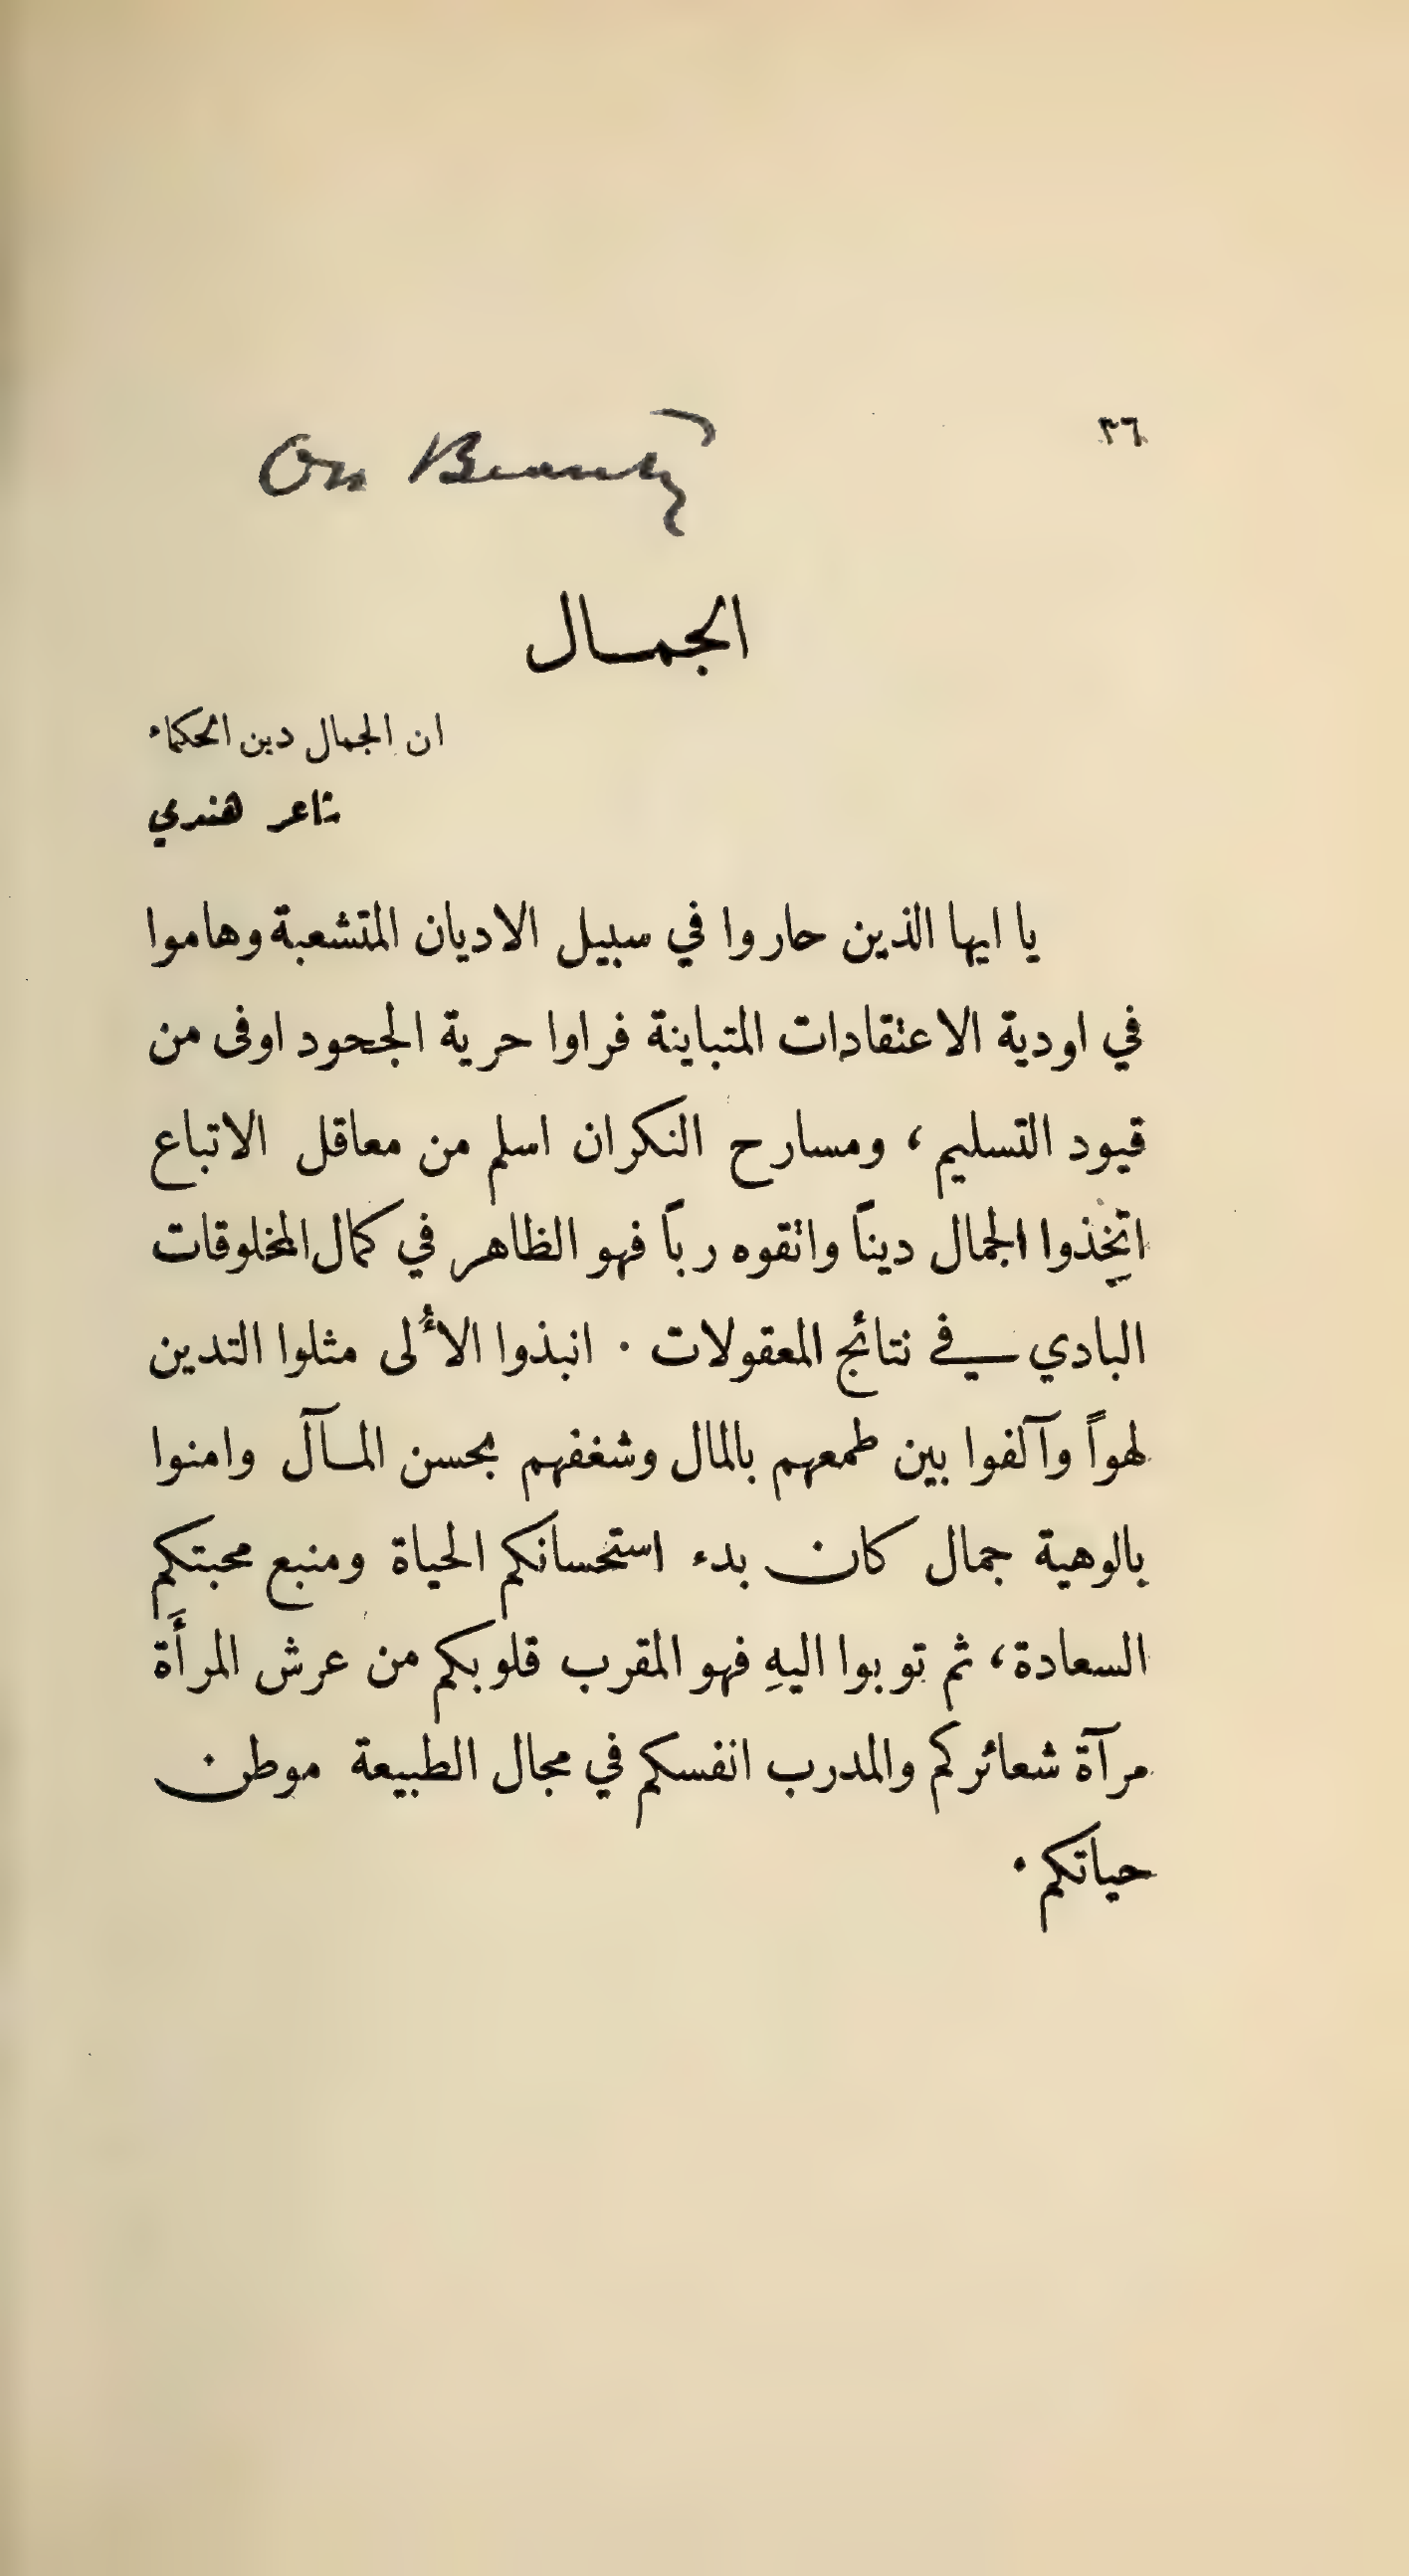 ٣٦
On Beauty
الجمـــال
ان الجمال دين الحكماء
شاعر هندي
يا ايها الذين حاروا في سبيل الاديان المتشعبة وهاموا
في اودية الاعتقادات المتباينة فراوا حرية الجحود اوفى من
قيود التسليم ، ومسارح النكران اسلم من معاقل الاتباع
اتخِذوا الجمال ديناً واتقوه رباً فهو الظاهر في كمال المخلوقات
البادي في نتائج المعقولات . انبذوا الأُلى مثلوا التدين
لهواً وآلفوا بين طمعهم بالمال وشغفهم بحسن المـآل وامنوا
بالوهية جمال كان بدء استحسانكم الحياة ومنبع محبتكم
السعادة ، ثم توبوا اليهِ فهو المقرب قلوبكم من عرش المرأَة
مرآة شعائركم والمدرب انفسكم في مجال الطبيعة موطن
حياتكم .